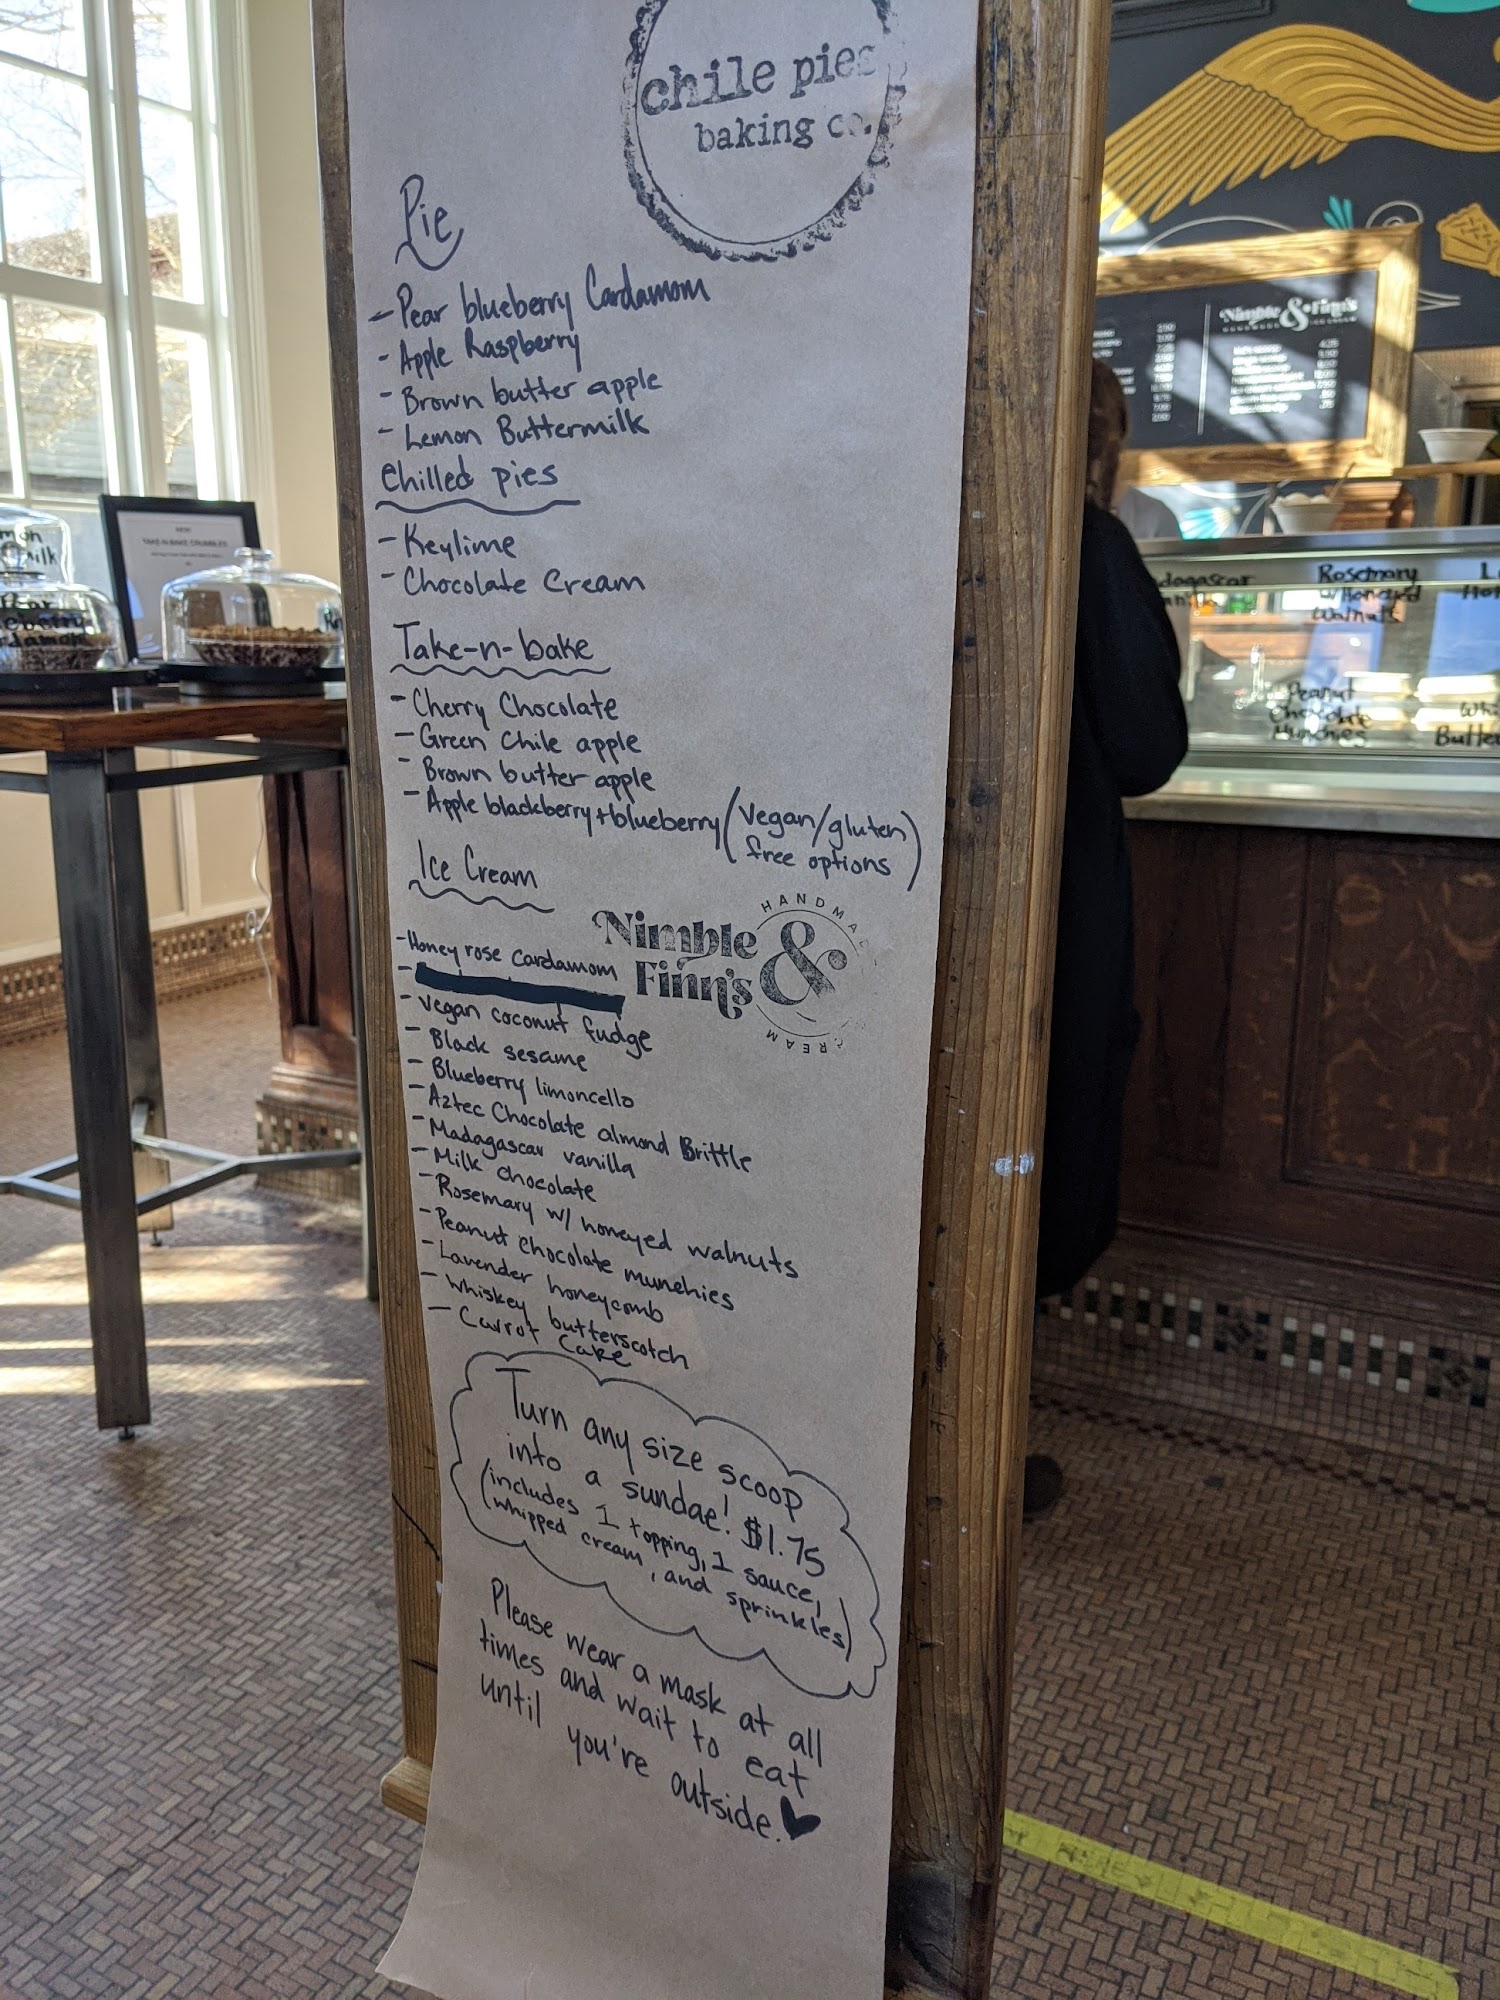 chile pies
baking co.
Pie
- Pear blueberry Cardamom
- Apple Raspberry
- Brown butter apple
- Lemon Buttermilk
Chilled pies
- Keylime
- Chocolate Cream
Take-n-bake
- Cherry Chocolate
- Green Chile apple
- Brown butter apple
- Apple blackberry + blueberry (vegan/gluten
free options)
Ice Cream
Nimble & Finn's
HANDMA
CREAM
- Honey rose cardamom
- vegan coconut fudge
- Black sesame
- Blueberry limoncello
- Aztec Chocolate almond Brittle
- Madagascar vanilla
- Milk chocolate
- Rosemary w/ honeyed walnuts
- Peanut chocolate munchies
- Lavender honeycomb
- Whiskey butterscotch
- Carrot Cake
Turn any size scoop
into a sundae! $1.75
(includes 1 topping, 1 sauce,
whipped cream, and sprinkles)
Please wear a mask at all
times and wait to eat
until you're outside.
Nimble & Finn's
Rosemary
w/Honeyed
Walnuts
Peanut
Chocolate
Munchies